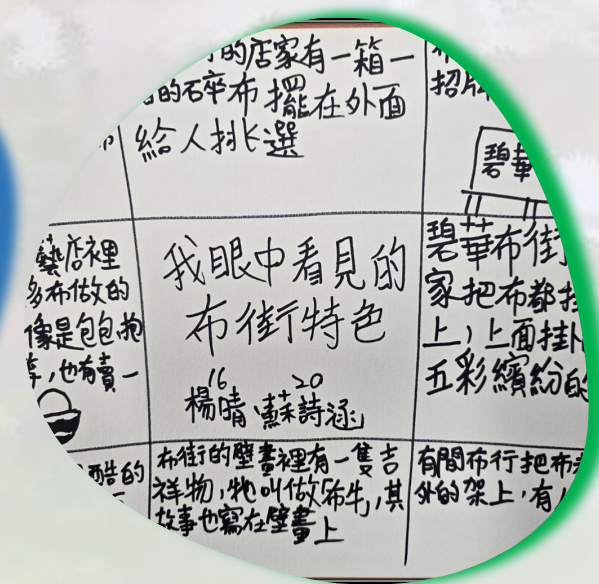 的店家有一箱一
的碎布擺在外面
給人挑選
招牌
碧華
藝店裡
多布做的
像是包包,抱
,也有賣一
我眼中看見的
布街特色
16 20
楊晴、蘇詩涵
碧華布街
家把布都掛
上,上面掛
五彩繽紛的
酷的
布街的壁畫裡有一隻吉
祥物,牠叫做「布牛」,其
故事也寫在壁畫上
有間布行把布
外的架上,有